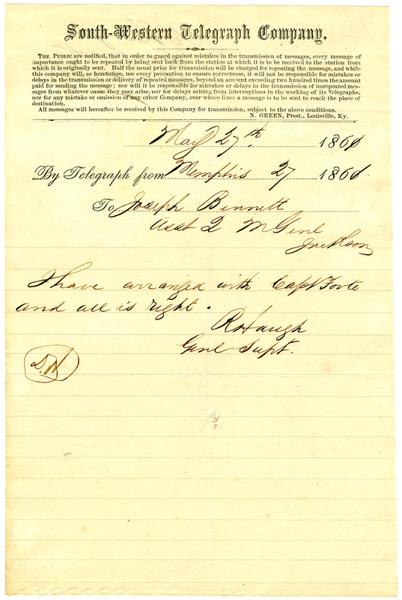 South-Western Telegraph Company.
THE PUBLIC are notified, that in order to guard against mistakes in the transmission of messages, every message of
importance ought to be repeated by being sent back from the station at which it is to be received to the station from
which it is originally sent. Half the usual price for transmission will be charged for repeating the message, and while
this company will, as heretofore, use every precaution to ensure correctness, it will not be responsible for mistakes or
delays in the transmission or delivery of repeated messages, beyond an amount exceeding two hundred times the amount
paid for sending the message; nor will it be responsible for mistakes or delays in the transmission of unrepeated messages
from whatever cause they may arise, nor for delays arising from interruptions in the working of its Telegraphs,
nor for any mistake or omission of any other Company, over whose lines a message is to be sent to reach the place of
destination.
All messages will hereafter be received by this Company for transmission, subject to the above conditions.
N. GREEN, Prest., Louisville, Ky.
May 27th 1861
By Telegraph from Memphis 27 1861
To Joseph Bennett
Asst 2 M Genl
Jackson
I have arranged with Capt Foote
and all is right.
R Haugh
Genl Supt.
D.H